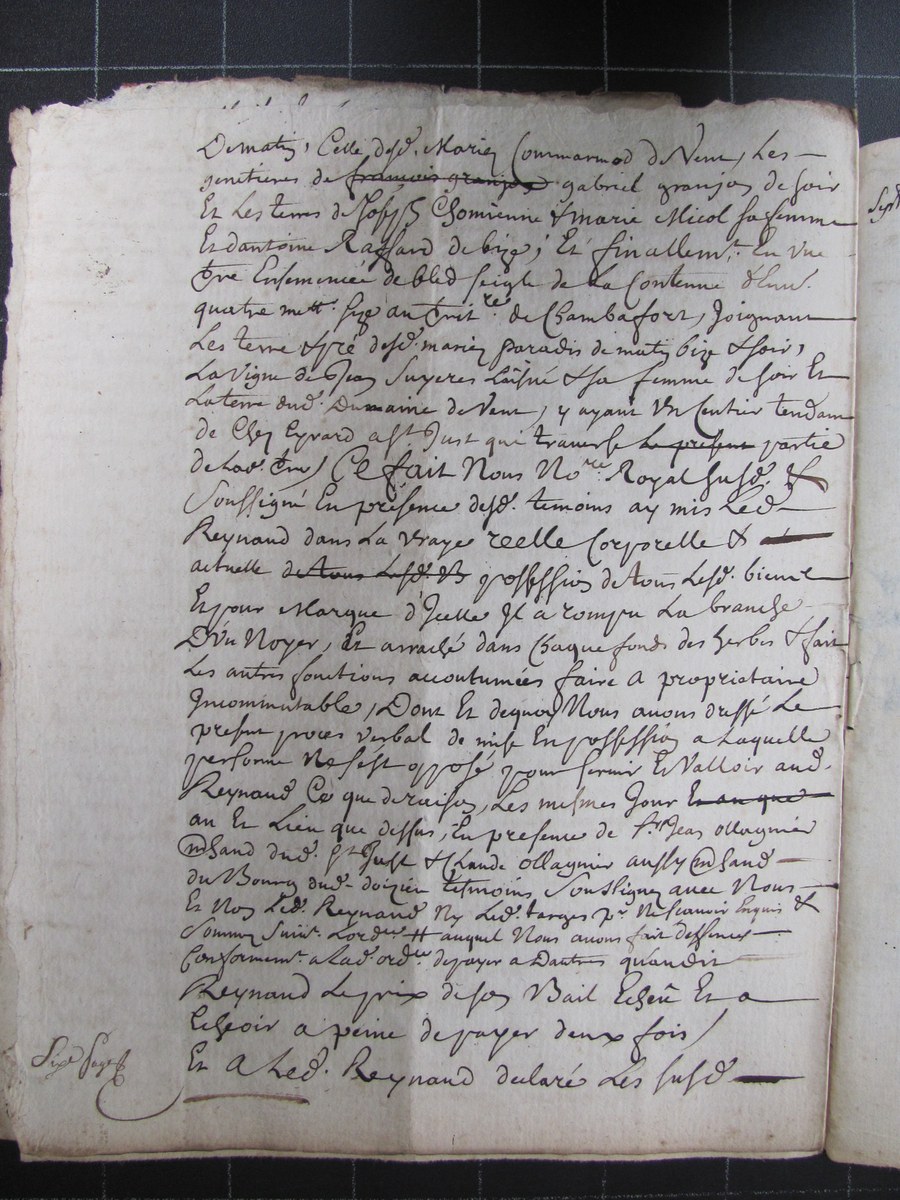 De matin, Celle desd. Mariez Commarmod de Vent, Les
genetieres de francois granjon gabriel granjon de soir
Et Les terres de Joseph Chomienne & marie Micol sa femme
Et dantoine Raffard de bize; Et finallemt. En une
Tre Ensemencée de bled seigle de La Contenue
quatre mett. size au Territre. de Chambafort, Joignant
Les terre & pré desd. mariez paradis de matin bize & soir,
La Vigne de Jean Suyeres L'aisné & sa femme de soir Et
La terre dud. Dumaine de Vent, y ayant Un sentier tendam
de Chez Eyrard a St. Just qui traverse Le present partie
de Lad. Tre) Ce fait Nous Nore. Royal susd. &
Soussigné En présence desd. temoins ay mis Led.
Reynaud dans La Vraye reelle Corporelle &
actuelle de tous Lesd. B possession de tous Lesd. biens
Et pour Marque d'Icelle Il a rompu La branche
D'Un Noyer, Et arraché dans Chaque fonds des herbes & fait
Les autres fonctions accoutumées faire a proprietaire
Incommutable, Dont Et dequoy Nous avons dressé Le
present proces verbal de mise En possession a Laquelle
personne Ne s'est opposé pour servir Et Valloir aud.
Reynaud Ce que de raison, Les mesmes Jour Et an que
an Et Lieu que dessus, En presence de Sr. Jean ollagnier
mchand dud. St Just & Claude ollagnier aussy mchand
du Bourg dud. doizieu tesmoins Soussignez avec Nous
Et Non Led. Reynaud Ny Led. targes pr. Ne scavoir Enquis &
Sommez Suivt. Lordce. # auquel Nous avons fait deffences
Conformemt. a Lad. ordce. de payer a Dautres quaudit
Reynaud Le prix de son Bail Echeu Et a
Echeoir a peine de payer deux fois/
Et A Led. Reynaud declaré Les susd.
Sixe Page